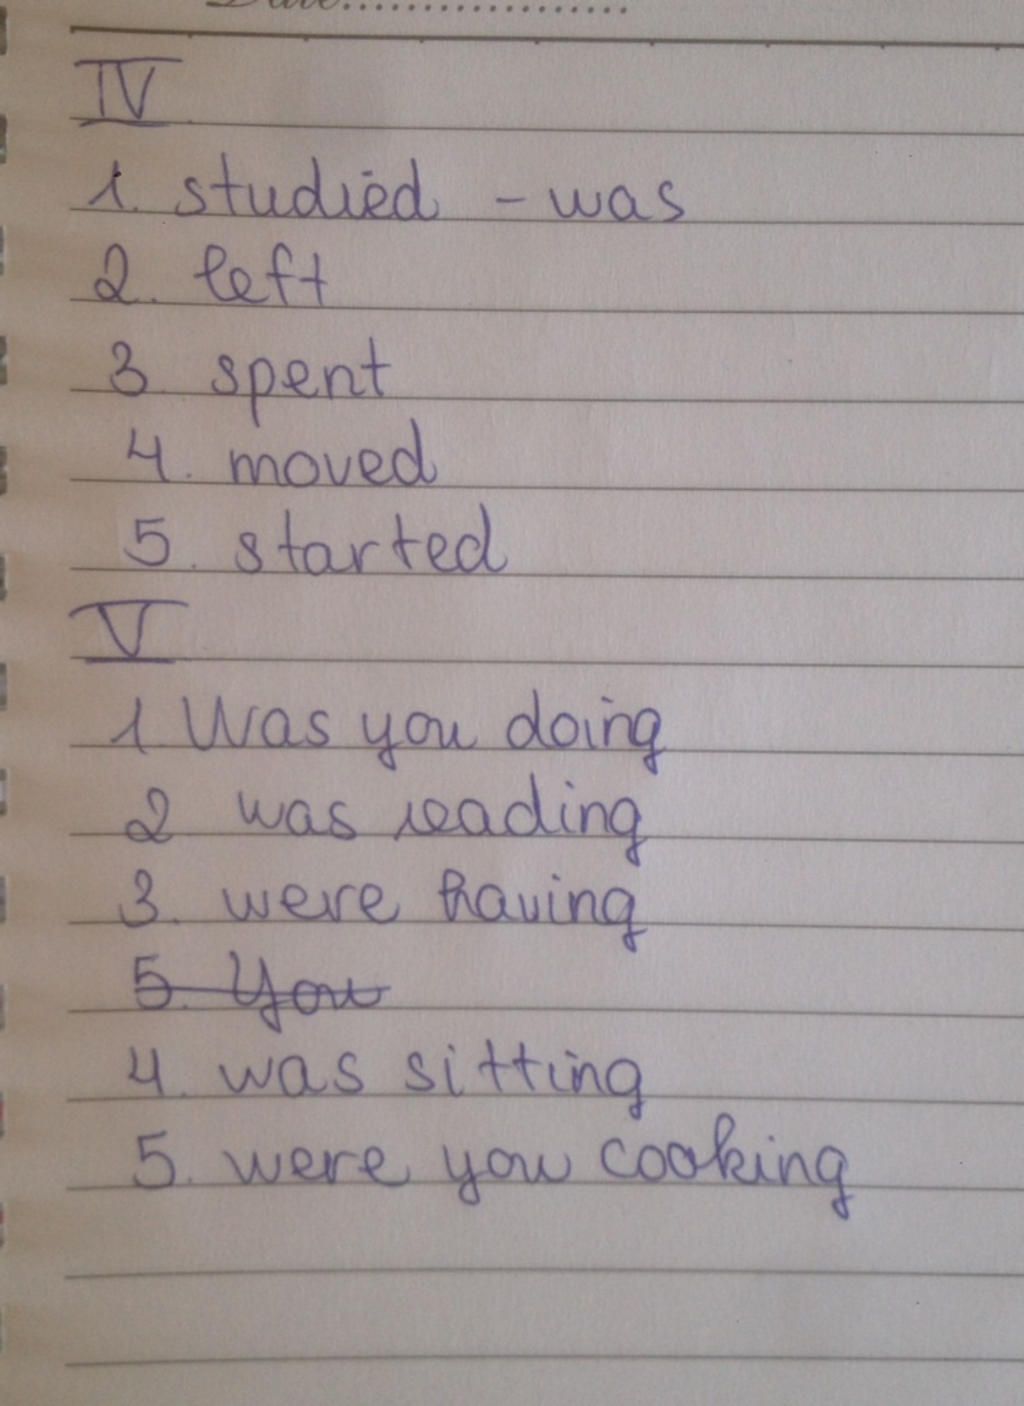 Date...................
IV
1. studied - was
2. left
3. spent
4. moved
5. started
V
1. Was you doing
2 was reading
3. were having
5. You
4. was sitting
5. were you cooking